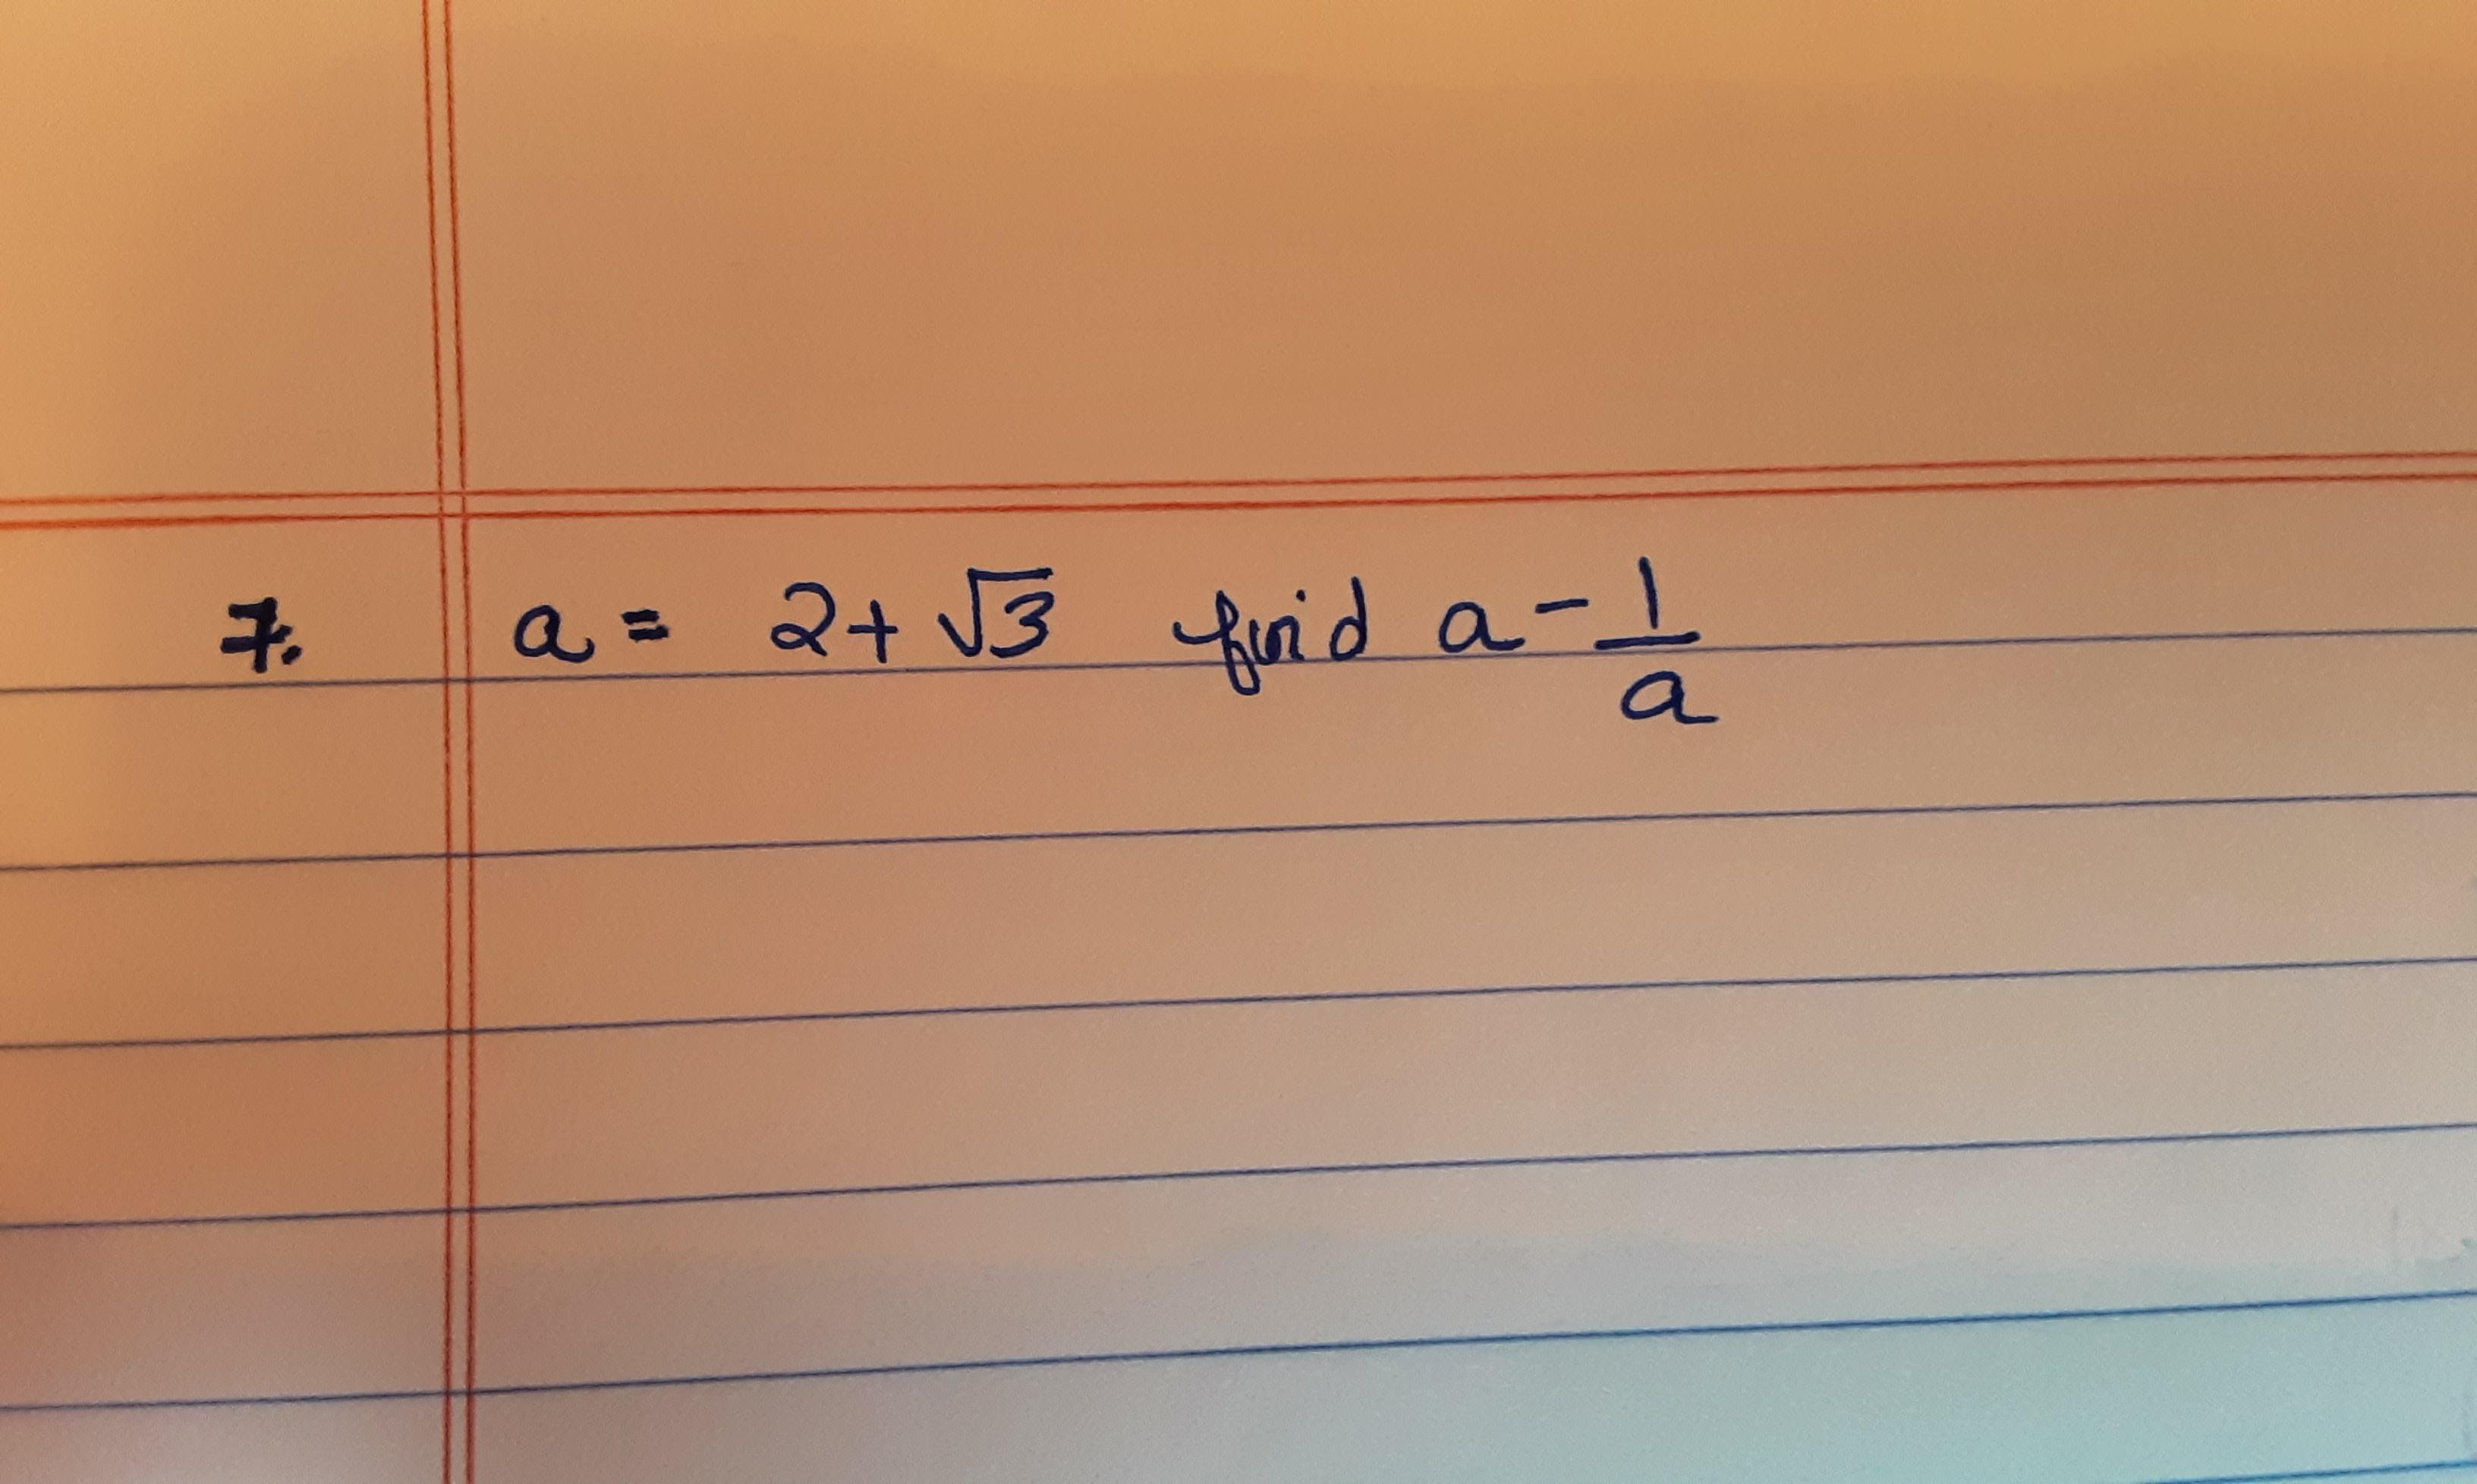 7. a = 2+√3 find a - 1/a